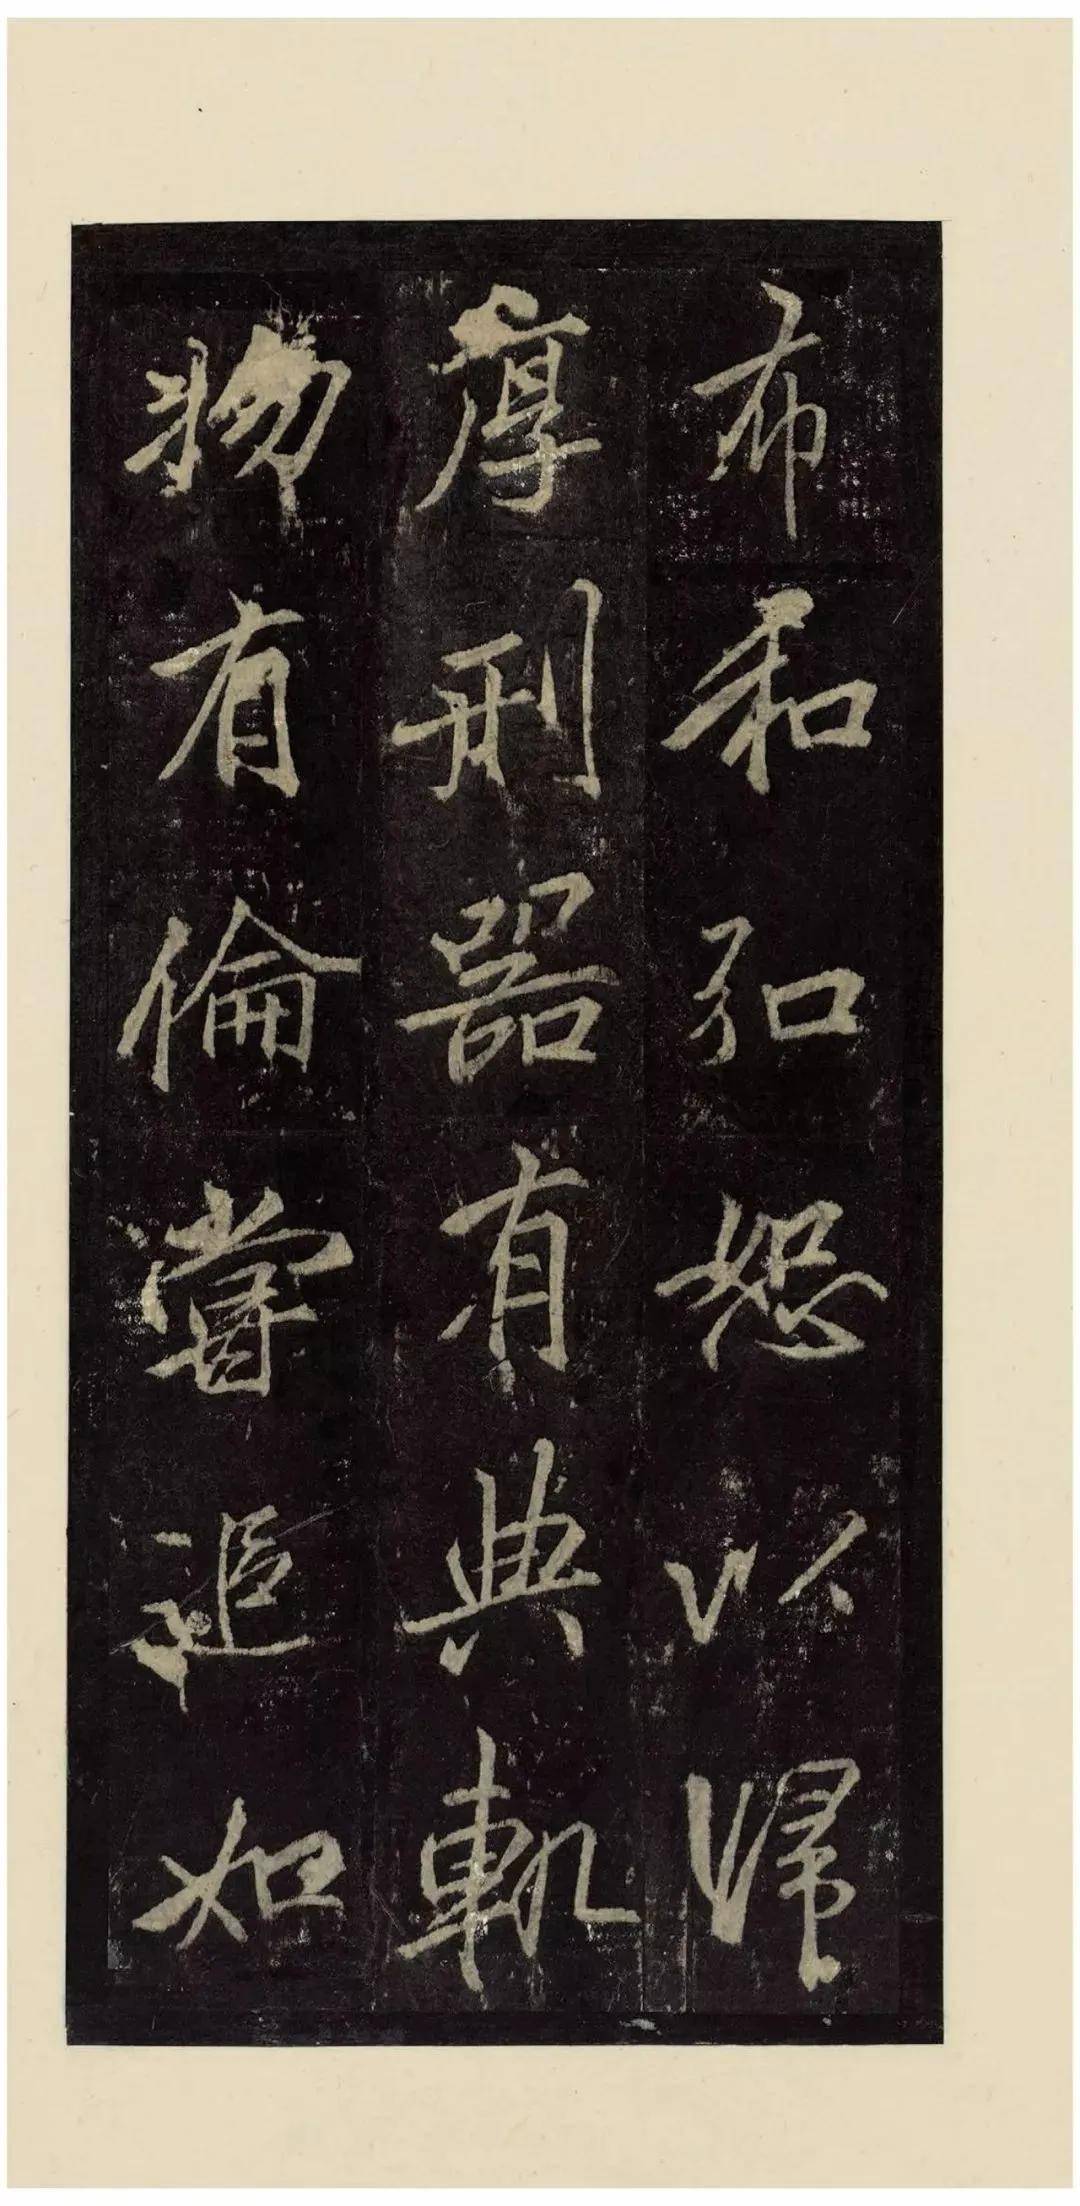 布和弘恕以歸
厚刑器有典軌
物有倫嘗追如